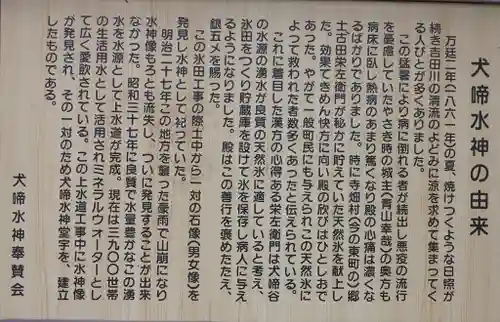 犬啼水神の由来
万延二年(一八六一年)の夏、焼けつくような日照が
続き吉田川の清流のよどみに涼を求めて集まつてく
る人びとが多くありました。
この猛暑により病に倒れる者が続出し悪疫の流行
を憂慮していたやさき時の城主(青山幸哉)の奥方も
病床に臥し熱病のあまり篤くなり殿の心痛は濃くな
るばかりでありました。時に寺畑村(今の東町の)郷
士古田栄左衛門が秘かに貯えていた天然氷を献上し
た。効果てきめん快方に向い殿の欣びはひとしおで
あった。やがて一般町民にも与えられこの天然氷に
よって救われた者数多くあったと伝えられている。
これに着目した漢方の心得ある栄左衛門は犬啼谷
の水源の湧水が良質の天然氷に適していると考え、
氷田をつくり貯蔵庫を設けて氷を保存し病人に与え
るようになりました。殿はこの善行を獲めたたえ、
銀五〆を賜った。
この氷田工事の際土中から一対の石像(男女像)を
発見し水神として祀っていた。
明治二十七年この地方を襲った豪雨で山崩になり
水神像もろとも流失し、ついに発見することが出来
なかった。昭和三十七年に良質で水量豊かなこの湧
水を水源として上水道が完成。現在は三九〇〇世帯
の生活用水として活用されミネラルウォーターとし
て広く愛飲されている。この上水道工事中に水神像
が発見され、その一対のため犬啼水神堂宇を、建立
したものである。
犬啼水神奉賛会